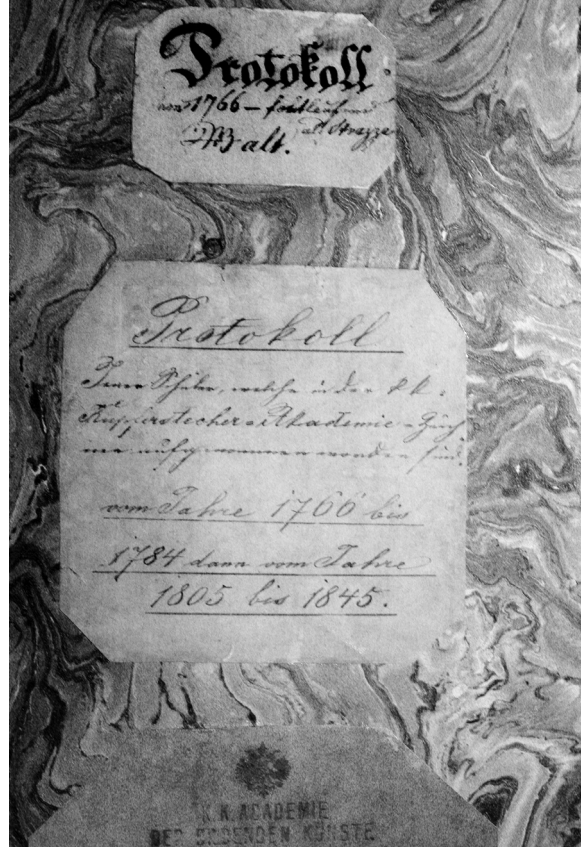 Protokoll
von 1766 – fortlaufend
alt Strazze
M alt.
Protokoll
Jener Schüler, welche in der k. k.
Kupferstecher-Akademie-Zeich
nen aufgenommen worden sind.
vom Jahre 1766 bis
1784 dann vom Jahre
1805 bis 1845.
K. K. ACADEMIE
DER BILDENDEN KÜNSTE